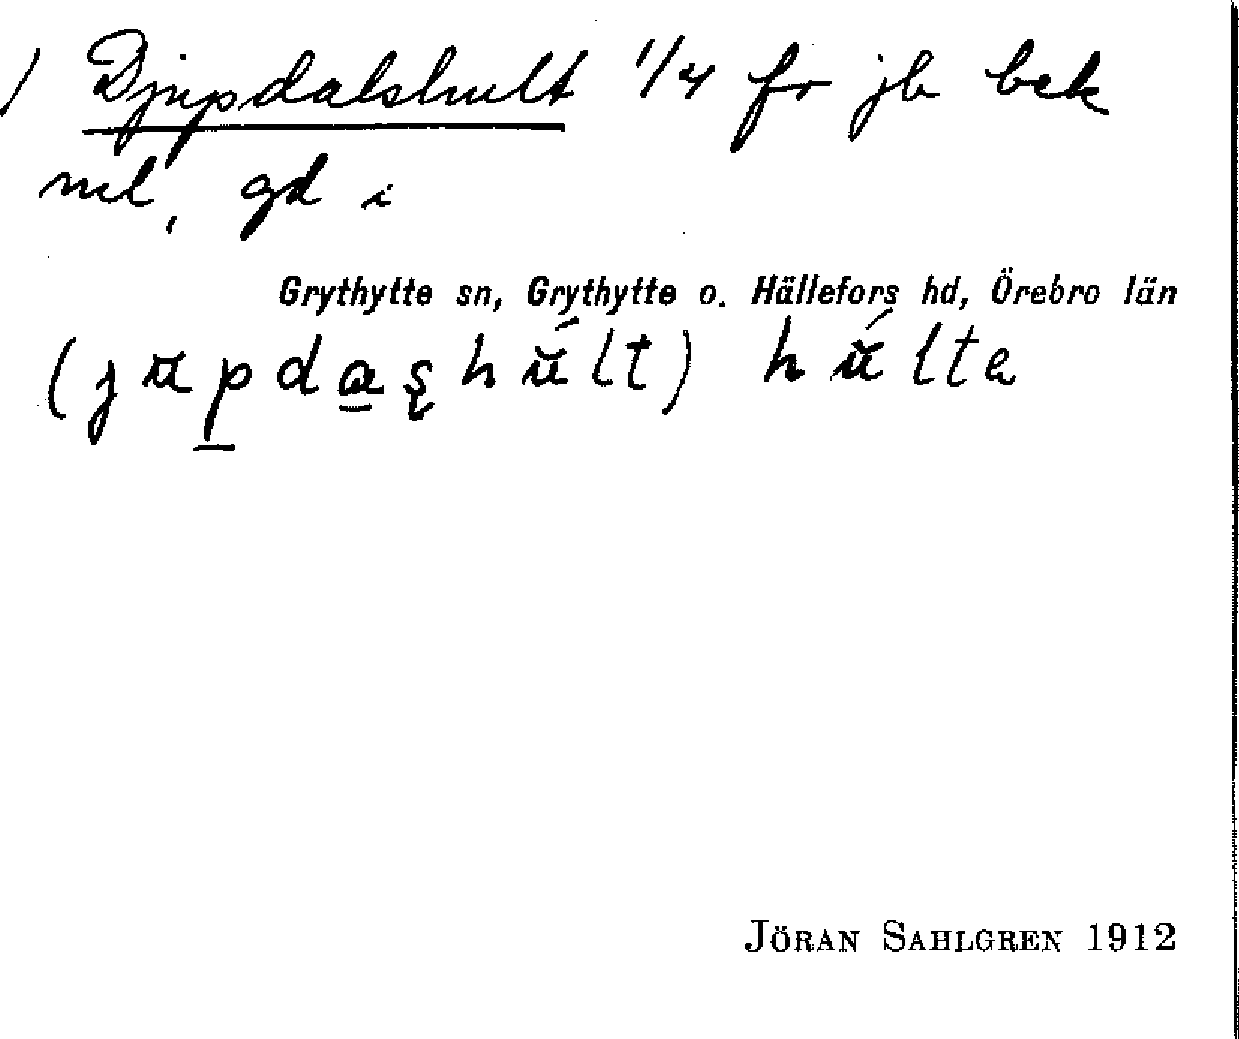 ) Djupdalshult 1/4 fr jb bek
nel, gd i
Grythytte sn, Grythytte o. Hällefors hd, Örebro län
(jupdaşhúlt) húlta
JÖRAN SAHLGREN 1912